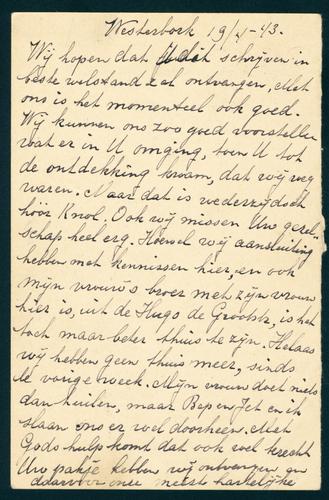 Westerbork 19/4-43.
Wij hopen dat U dit schrijven in
beste welstand zal ontvangen, Met
ons is het momenteel ook goed.
Wij kunnen ons zoo goed voorstellen
wat er in U omging, toen U tot
de ontdekking kwam, dat wij weg
waren. Maar dat is wederzijdsch
hoor Knol. Ook wij missen Uw gezel-
schap heel erg. Hoewel wij aansluiting
hebben met kennissen hier, en ook
mijn vrouw's broer met zijn vrouw
hier is, uit de Hugo de Grootstr, is het
toch maar beter thuis te zijn. Helaas
wij hebben geen thuis meer, sinds
de vorige week. Mijn vrouw doet niets
dan huilen, maar Bep en Jet en ik
slaan ons er wel doorheen. Met
Gods hulp komt dat ook wel terecht
Uw pakje hebben wij ontvangen en
daarvoor onze meest hartelijke